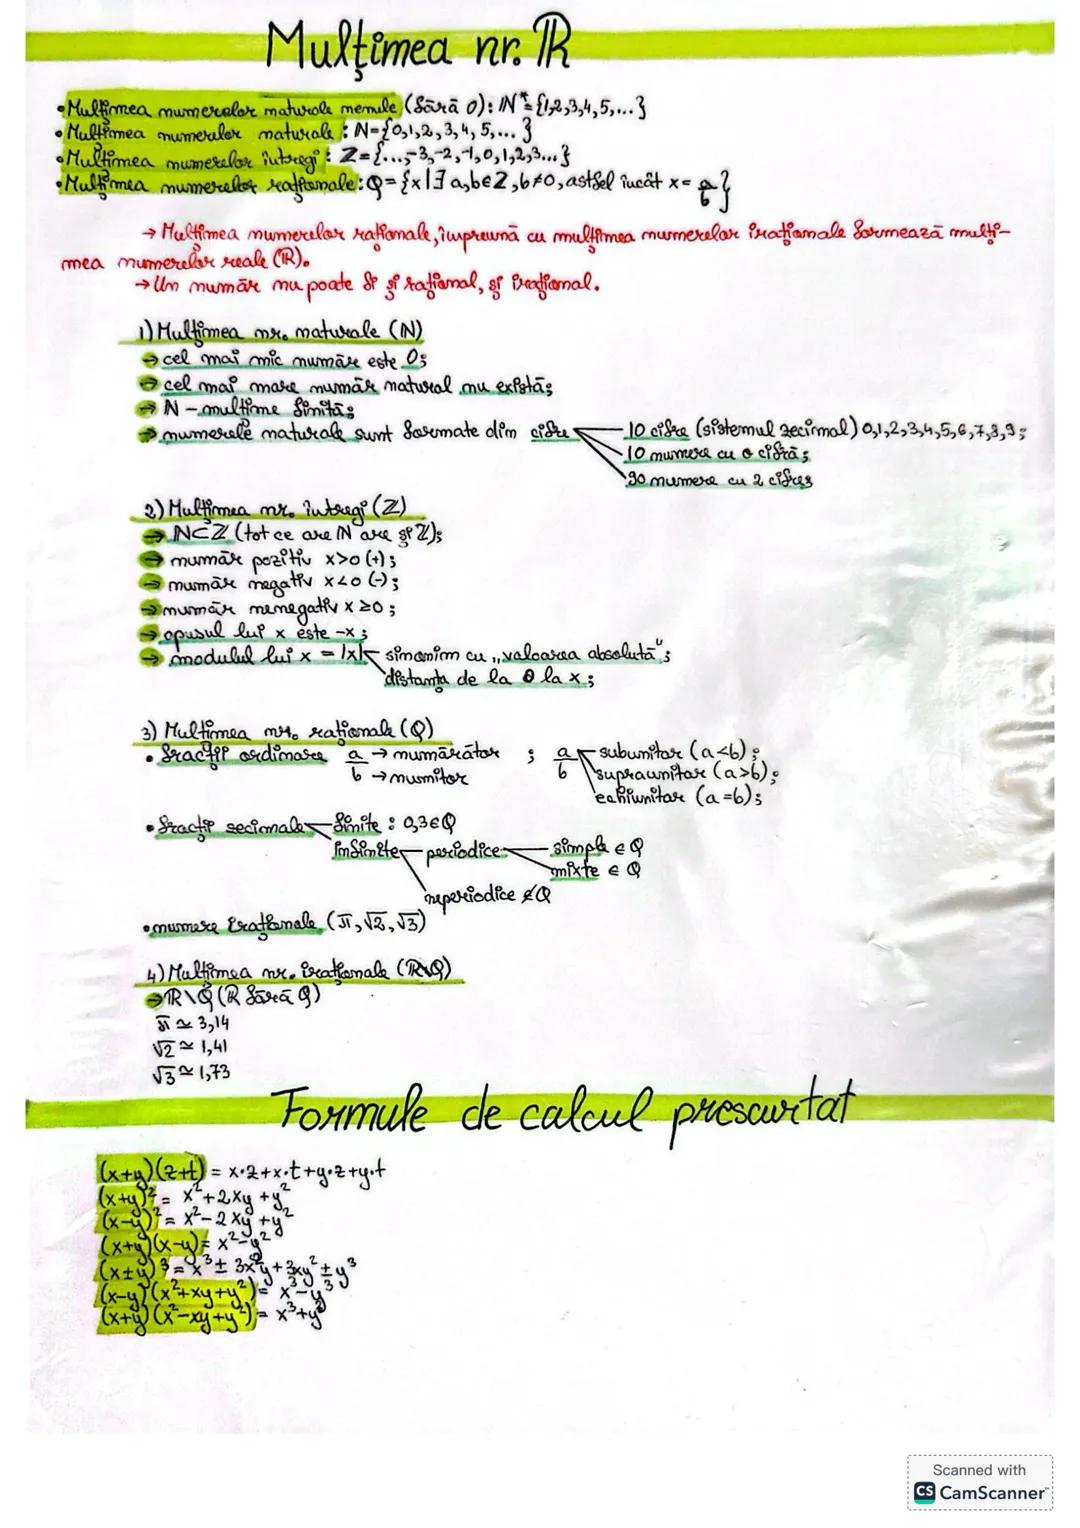 Mulțimea nr. ℝ
•Mulțimea numerelor naturale nenule (fără 0): ℕ*={1,2,3,4,5,...}
•Mulțimea numerelor naturale: N={0,1,2,3,4,5,... }
•Mulțimea numerelor întregi: Z={...,-3,-2,-1,0,1,2,3...}
•Mulțimea numerelor raționale: Q={x|∃ a,b∈Z,b≠0, astfel încât x= a/b}
→ Mulțimea numerelor raționale, împreună cu mulțimea numerelor iraționale formează mulți-
mea numerelor reale (ℝ).
→ Un număr nu poate fi și rațional, și irațional.
1) Mulțimea nr. naturale (ℕ)
→ cel mai mic număr este 0;
→ cel mai mare număr natural nu există;
→ ℕ – mulțime finită;
→ numerele naturale sunt formate din cifre 10 cifre (sistemul zecimal) 0,1,2,3,4,5,6,7,8,9;
10 numere cu o cifră;
90 numere cu 2 cifre;
2) Mulțimea nr. întregi (Z)
→ ℕ⊂Z (tot ce are ℕ are și Z);
→ număr pozitiv x>0 (+);
→ număr negativ x<0 (-);
→ număr nenegativ x ≥0;
→ opusul lui x este -x;
→ modulul lui x = |x| sinonim cu „valoarea absolută";
distanța de la 0 la x;
3) Mulțimea nr. raționale (Q)
• fracții ordinare a/b → numărător ; a/b subunitar (a<b);
→ numitor supraunitar (a>b);
echiunitar (a=b);
• fracții zecimale finite : 0,3∈Q
infinite periodice simple ∈ Q
mixte ∈ Q
neperiodice ∉Q
• numere iraționale (π,√2,√3)
4) Mulțimea nr. iraționale (ℝ\Q)
→ℝ\Q (ℝ fără Q)
π ≃ 3,14
√2 ≃ 1,41
√3 ≃ 1,73
Formule de calcul prescurtat
(x+y)(z+t) = x·z+x·t+y·z+y·t
(x+y)² = x²+2xy+y²
(x-y)² = x²-2xy+y²
(x+y)(x-y)= x²-y²
(x±y)³ = x³± 3x²y+3xy²±y³
(x-y)(x²+xy+y²)= x³-y³
(x+y)(x²-xy+y²)= x³+y³
Scanned with
CS CamScanner